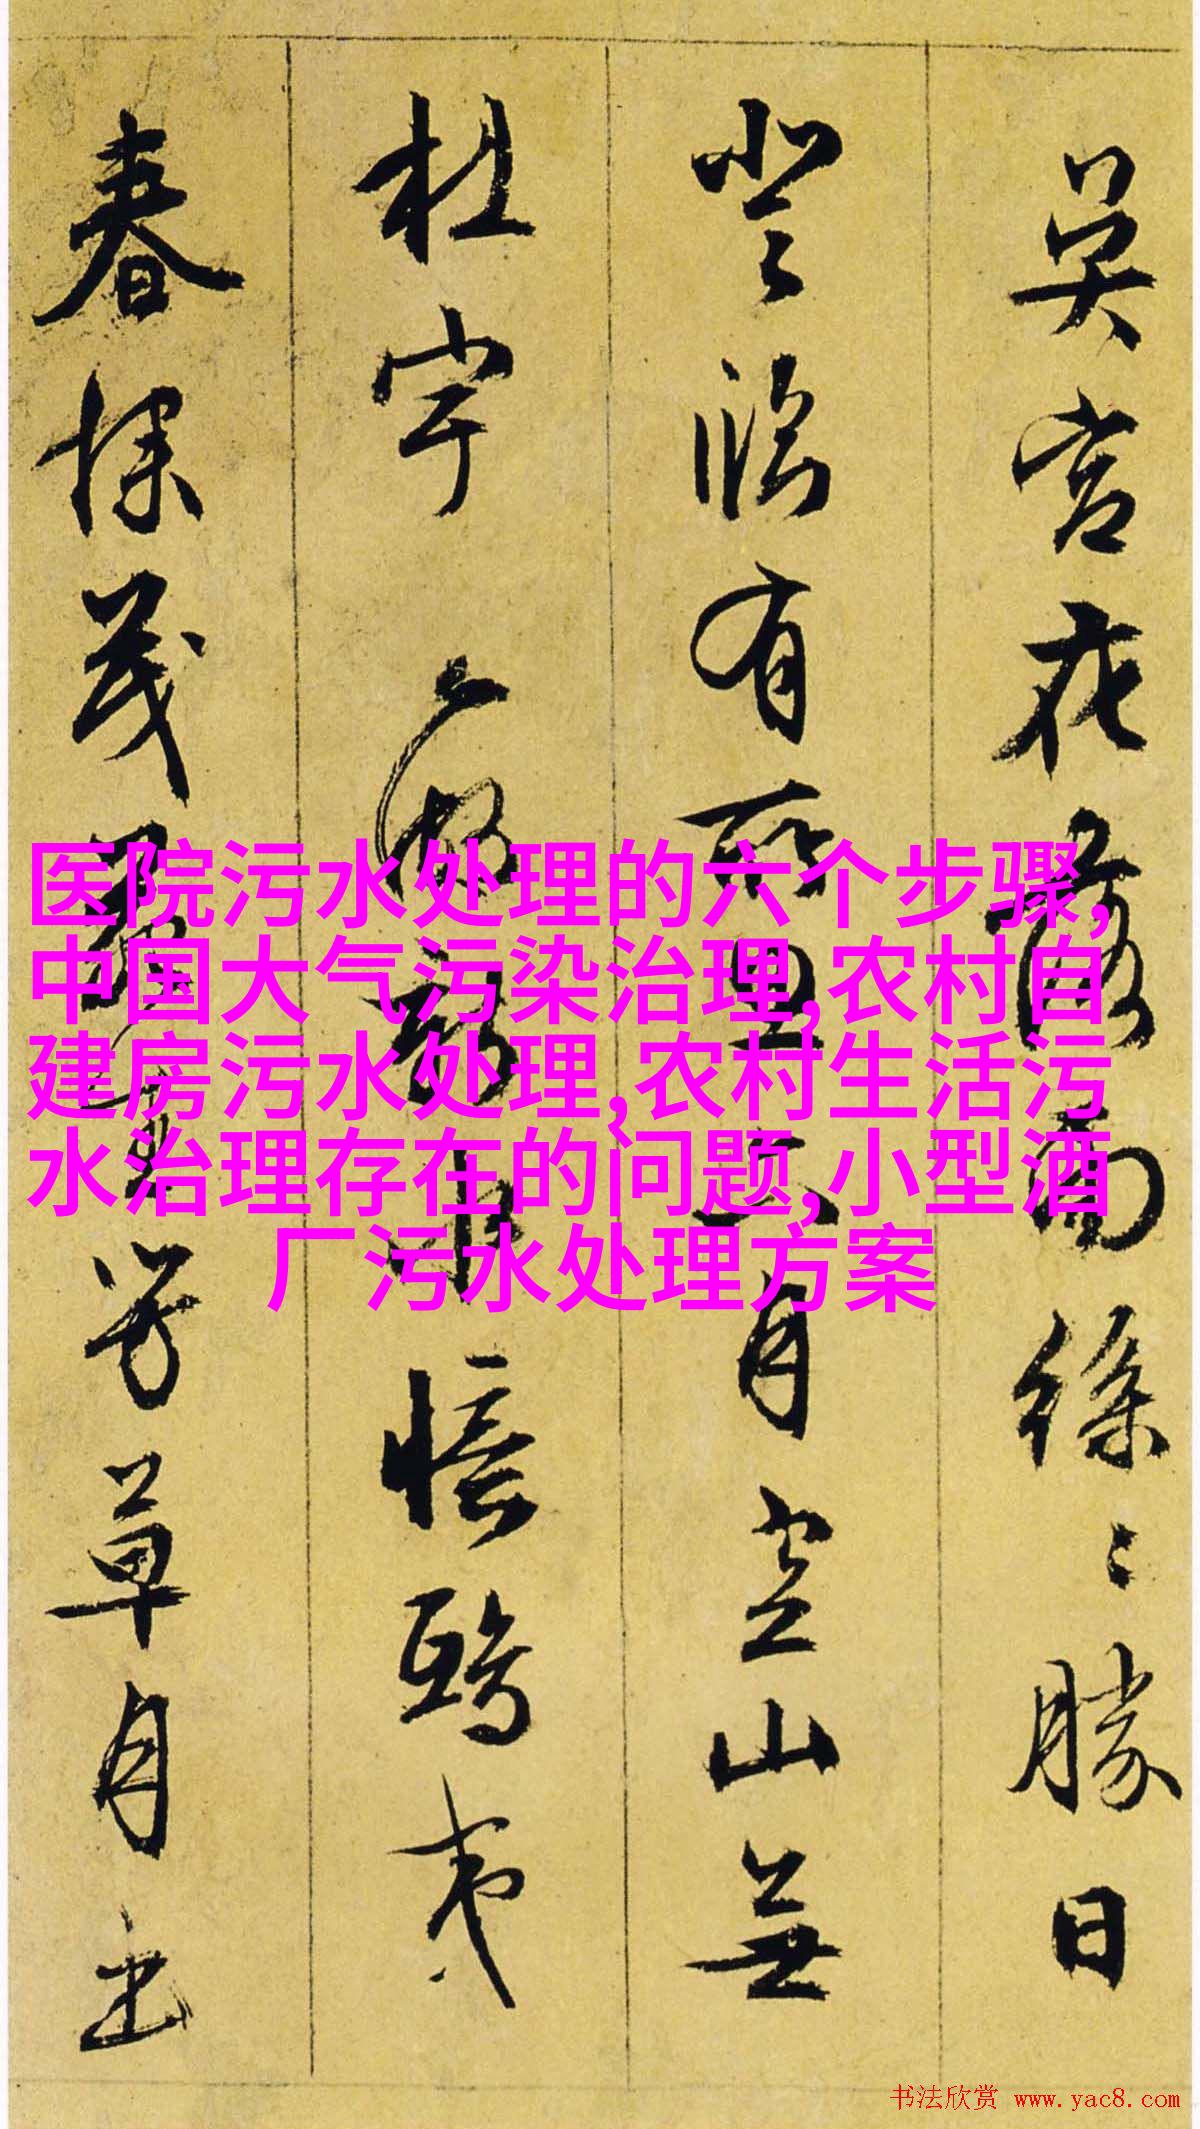 吴宫花落雨丝丝勝日
登临有所思
月空山無
杜宇
悟鸱夷
春深茂
芳草自生
医院污水处理的六个步骤,
中国大气污染治理,农村自
建房污水处理,农村生活污
水治理存在的问题,小型酒
厂污水处理方案
书法欣赏 www.yac8.com